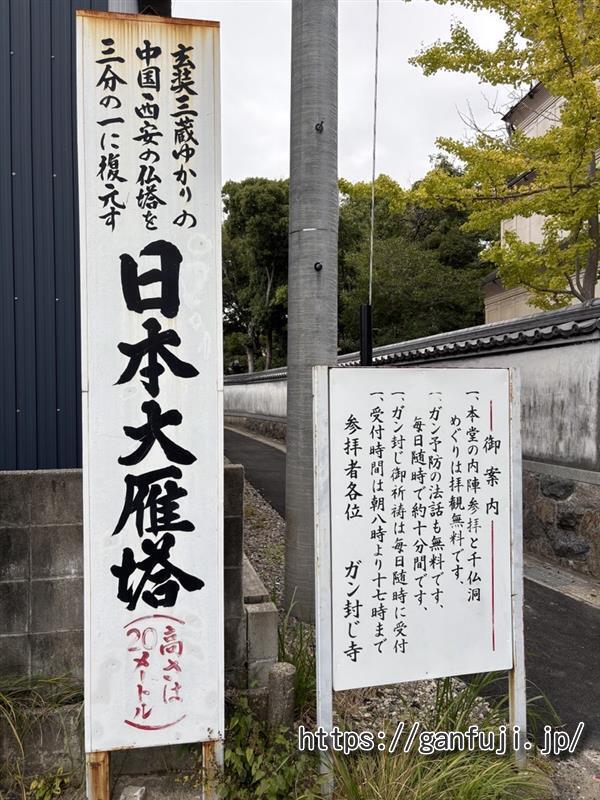 玄奘三蔵ゆかりの
中国西安の仏塔を
三分の一に復元す
日本大雁塔
(高さは
20メートル)
御案内
一、本堂の内陣参拝と千仏洞
めぐりは拝観無料です、
一、ガン予防の法話も無料です、
毎日随時で約十分間です、
一、ガン封じ御祈祷は毎日随時に受付
一、受付時間は朝八時より十七時まで
参拝者各位 ガン封じ寺
https://ganfuji.jp/